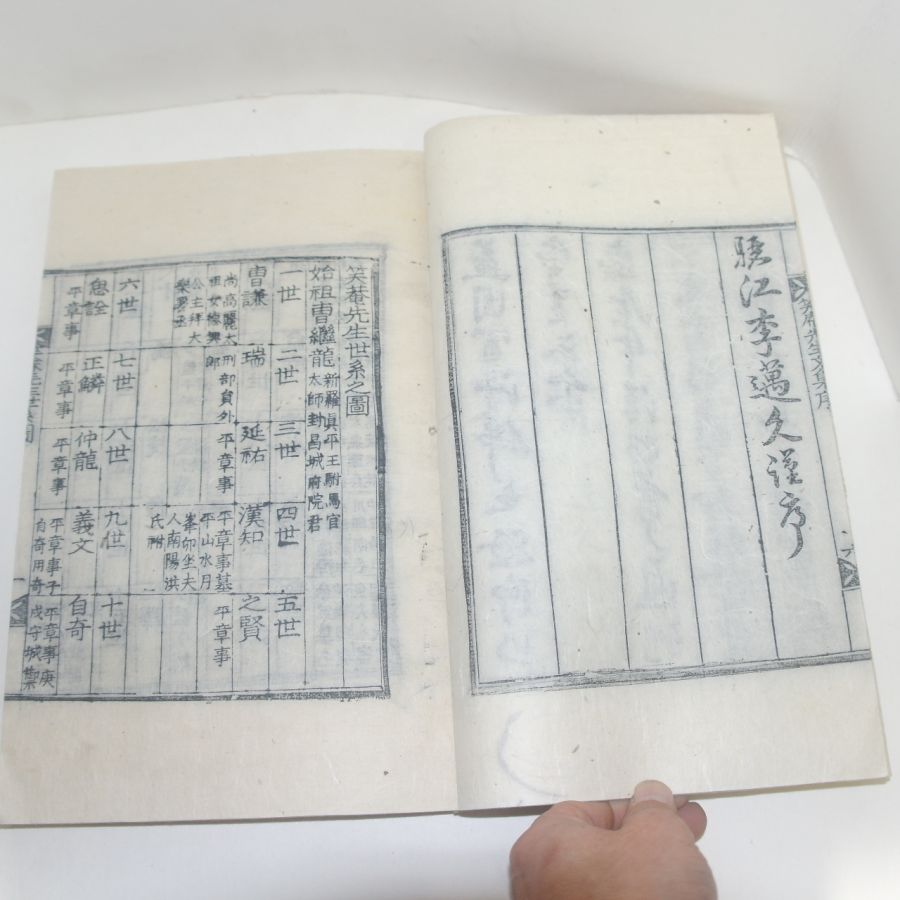 驪江李邁久謹序
笑菴先生世系之圖
始祖曺繼龍 新羅眞平王駙馬官
太師封昌城府院君
一世
曺謙
尚高麗太
祖女德興
公主拜大
樂署丞
二世
瑞
刑部員外
郎
三世
延祐
平章事
四世
漢知
平章事墓
平山水月
峯卯坐夫
人南陽洪
氏祔
五世
之賢
平章事
六世
思詮
平章事
七世
正鱗
平章事
八世
仲龍
平章事
九世
義文
平章事子
自奇用奇
十世
自奇
平章事庚
戍守城禦